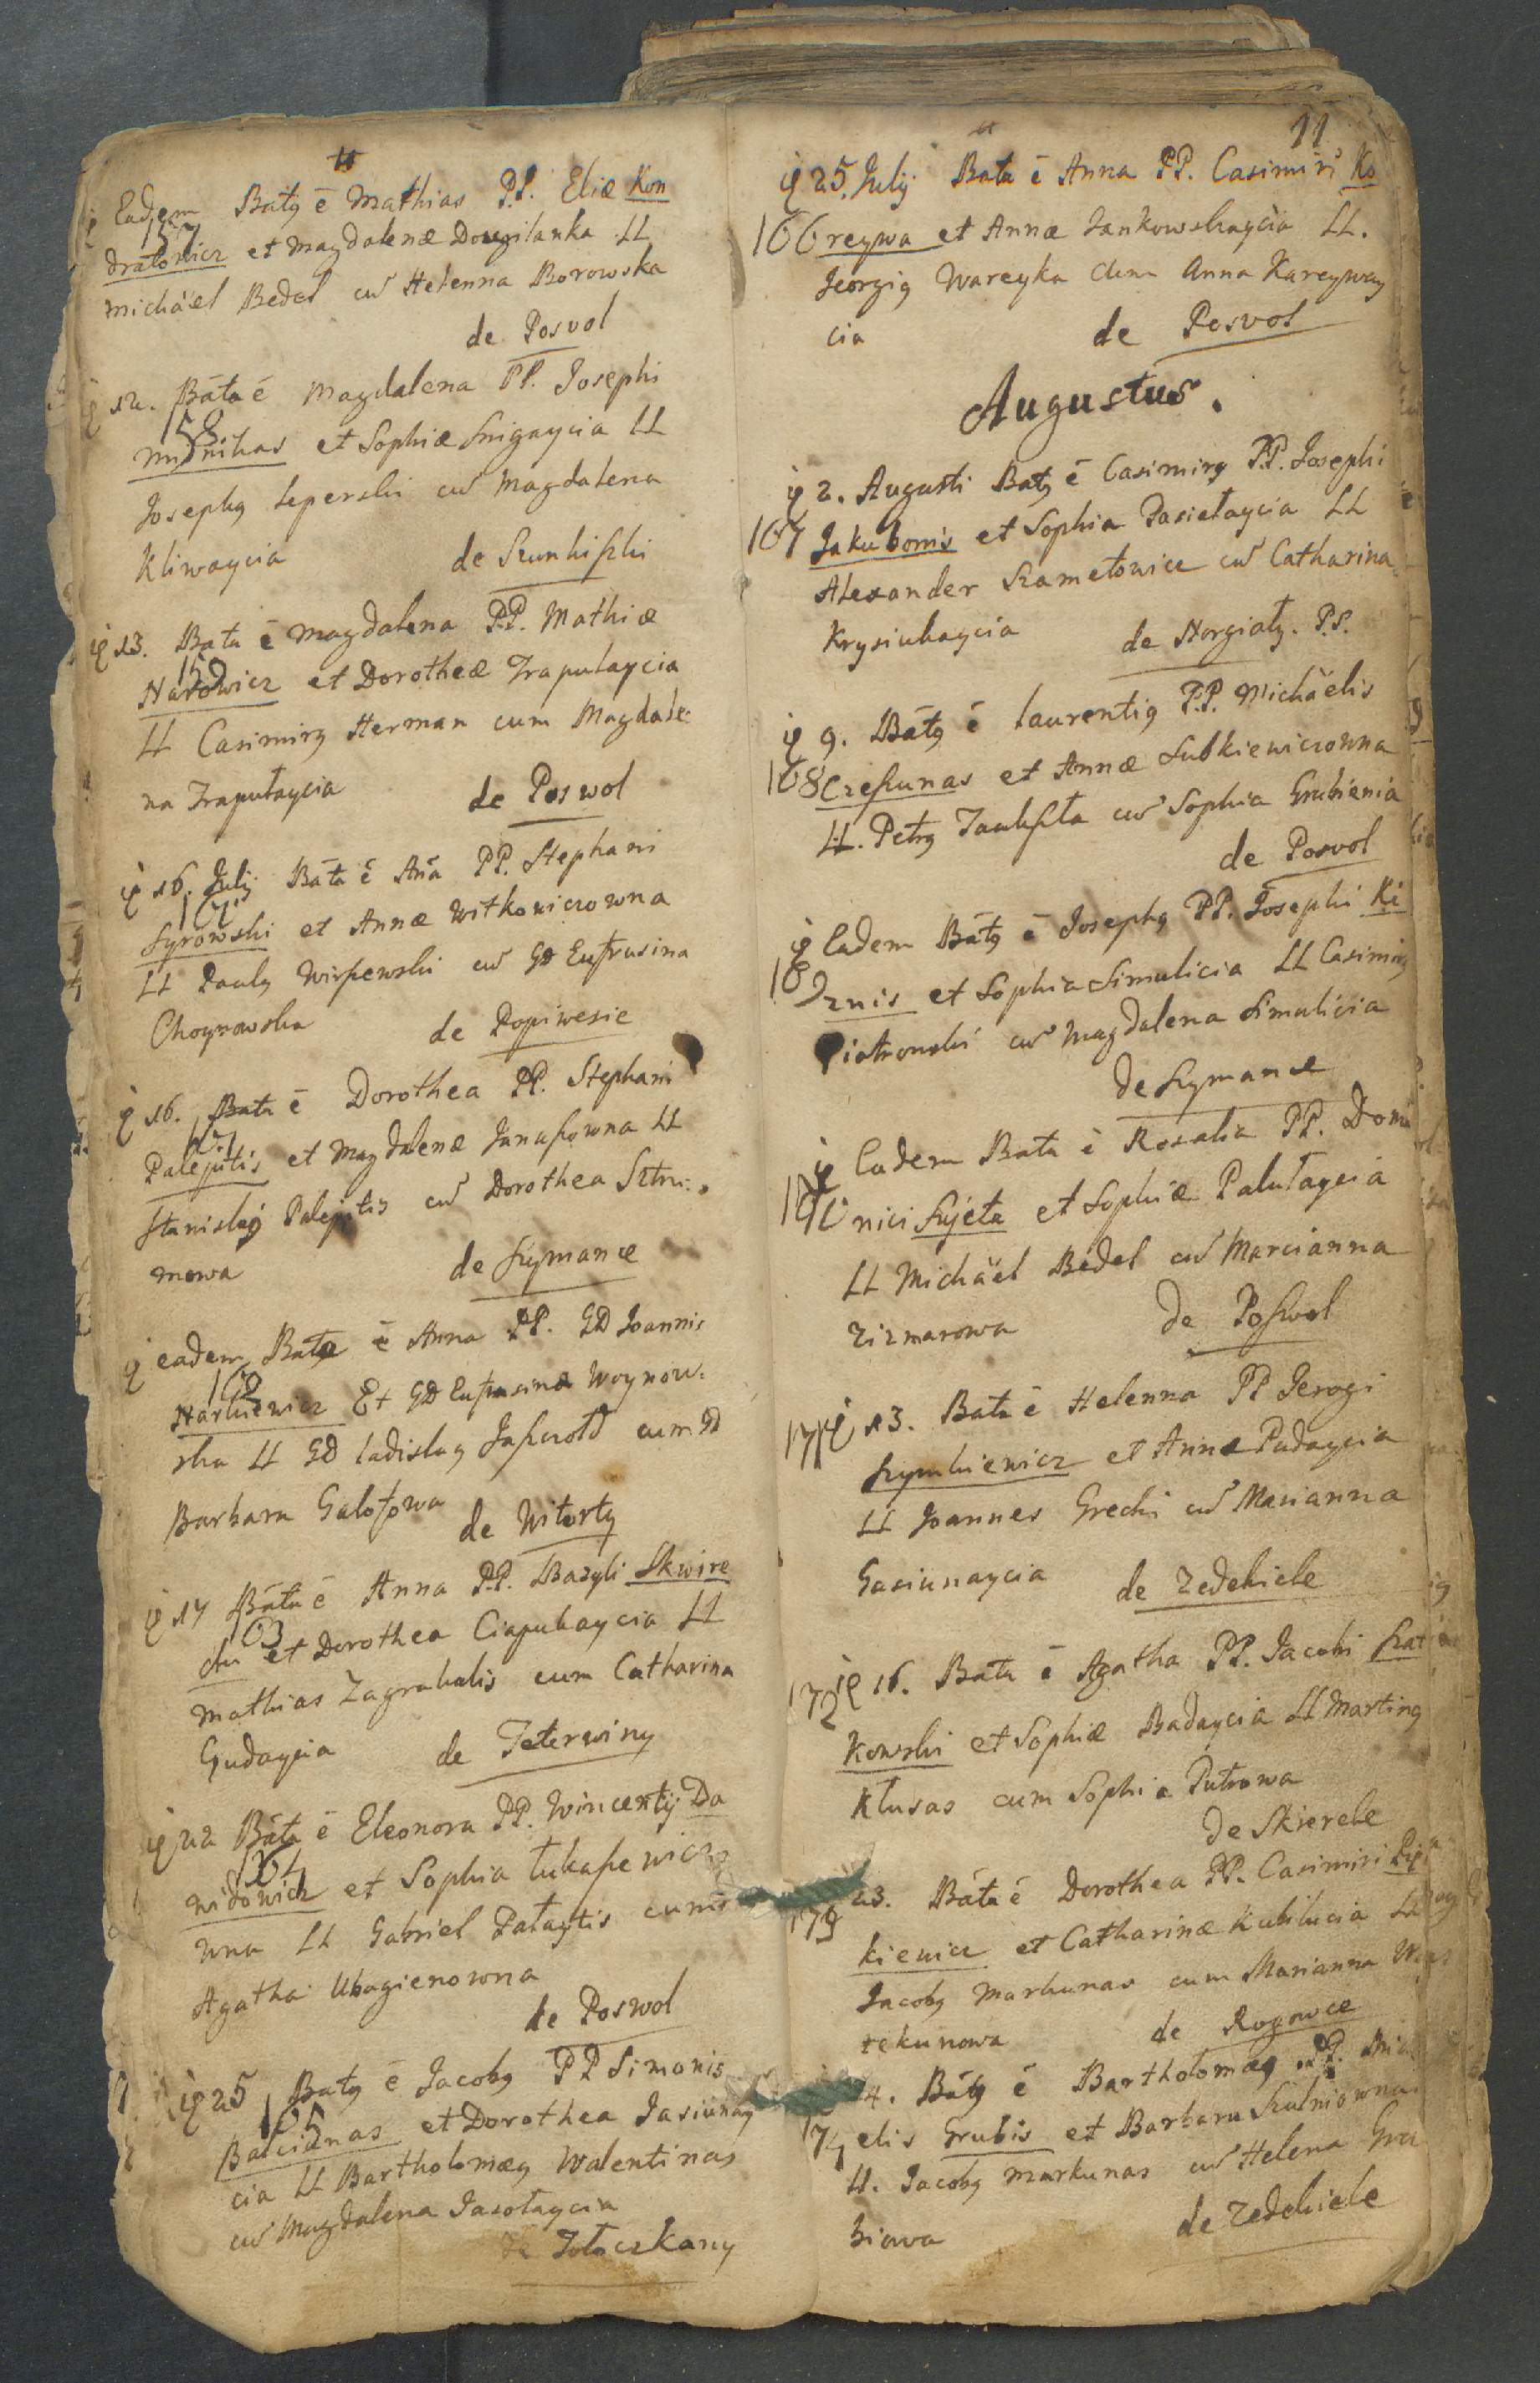 Eadem Batꝯ ē Mathias P.P. Eliæ Kon
157
dratowicz et Magdalenæ Dougilanka LL
Michäel Bedel cū Helenna Borowska
de Posvol
12. Bata ē Magdalena PP. Josephi
158
et Sophiæ Snigaycia LL
Josephꝯ Leperski cū Magdalena
Kliwaycia de
13. Bata ē Magdalena P.P. Mathiæ
159
Narowicz et Dorotheæ Trapulaycia
LL Casimirꝯ Herman cum Magdale
na Trapulaycia de Poswol
16. Julij Bata ē Aña PP. Stephani
Syrowski et Annæ Witkowiczowna
LL Paulꝯ cū GD Eufrusina
Choynowska de Popiwesie
16. Bata ē Dorothea PP. Stephani
161
Palepitis et Magdalenæ LL
Stanislaꝯ Palepitis cū Dorothea
mowa de Szymance
eadem Bata ē Anna PP. GD Joannis
162
Narkiewicz Et GD Eufrusinæ Woynow
ska LL GD Ladislaꝯ cum GD
Barbara de Witorty
17 Bata ē Anna P.P. Bazyli Skwire
163
et Dorothea Ciapukaycia LL
Mathias Zagrakalis cum Catharina
Gudaycia de Teterwiny
22 Bata ē Eleonora P.P. Wincentij Da
164
widowicz et Sophia Łukaszewiczo
wna LL Gabriel Pataytis cum
Agatha Ubagienowna
de Poswol
25 Batꝯ ē Jacobꝯ PP Simonis
165
Balciunas et Dorothea Jasiunay
cia LL Bartholomæꝯ Walentinas
cū Magdalena Jasołaycia
de Tołoczkany
11
25. Julij Bata ē Anna PP. Casimiri Ko
166 reywa et Annæ Jankowskaycia LL.
Georgiꝯ Wareyka cum Anna Kareyway
cia de Posvol
Augustus.
2. Augusti Batꝯ ē Casimirꝯ P.P. Josephi
167 Jakubonis et Sophia Pasiełaycia LL
Alexander Szametowicz cū Catharina
Krysiukaycia de Norgiały. P.P.
9. Batꝯ ē Laurentiꝯ P.P. Michäelis
168 et Annæ Lubkiewiczowna
LL. Petrꝯ cū Sophia Grubienia
de Posvol
Eadem Batꝯ ē Josephꝯ PP. Josephi Ki
169 znis et Sophia Simulicia LL Casimirꝯ
Piotrowski cū Magdalena Simulicia
de Szymance
Eadem Bata ē Rosalia PP. Domi
170 nici et Sophiæ Palułaycia
LL Michäel Bedel cū Marcianna
Zizmarowa de Poswol
171 13. Bata ē Helenna PP Jerogi
Szymkiewicz et Annæ Pudaycia
LL Joannes Grecki cū Marianna
Gasiunaycia de Zedekiele
172 16. Bata ē Agatha PP. Jacobi Szat
kowski et Sophiæ Badaycia LL Martinꝯ
Kłusas cum Sophia Putrowa
de Skierele
23. Bata ē Dorothea PP. Casimiri
173
kiewicz et Catharinæ Kubilucia LL
Jacobꝯ Markunas cum Marianna
rekunowa de Rogowce
Batꝯ ē Bartholomæꝯ PP. Micha
174 elis Grubis et Barbara
LL. Jacobꝯ Markunas cū Helena Gru
biowa de Zedekiele